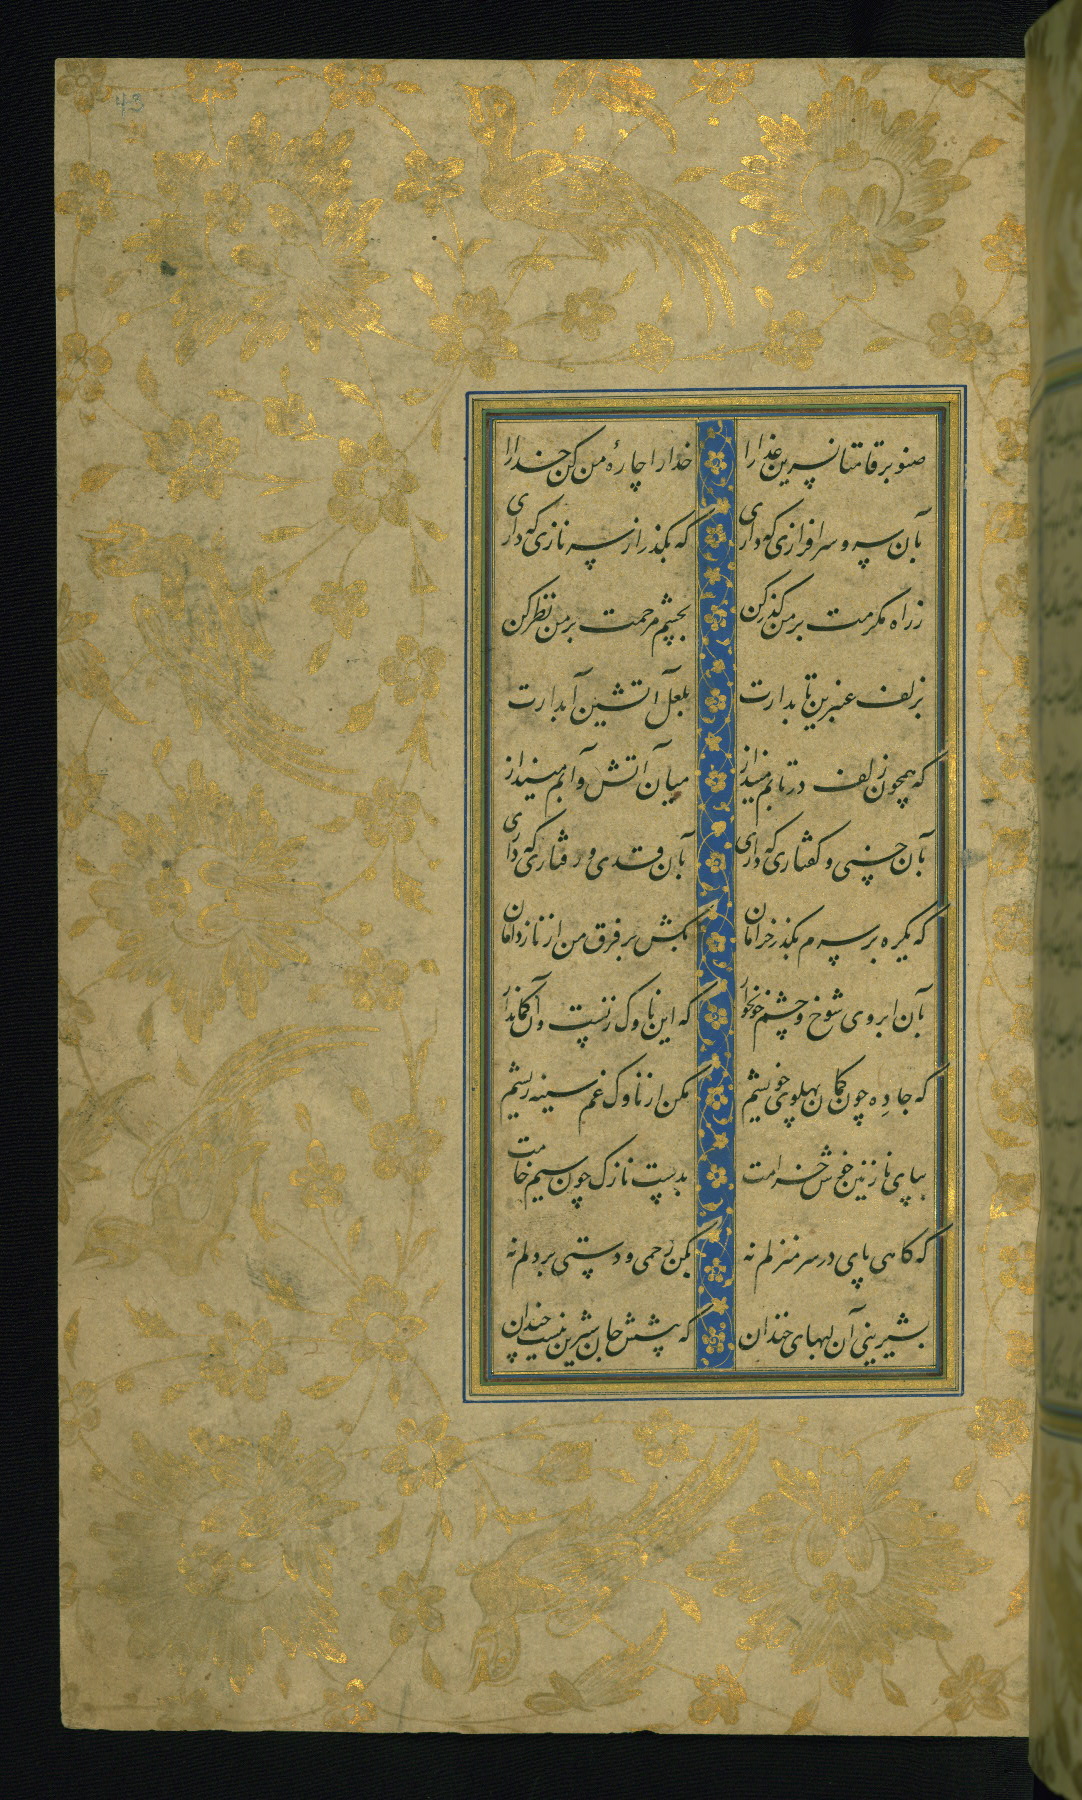 43
صنوبر قامتا نسرین عذارا خدا را چارهٔ من کن خدا را
بآن سرو سرافرازی که داری که بگذر از سر نازی که داری
ز راه مکرمت بر من گذر کن بچشم مرحمت بر من نظر کن
بزلف عنبرین تابدارت بلعل آتشین آبدارت
که همچون زلف در تابم مینداز میان آتش و آبم مینداز
بآن حسنی و گفتاری که داری بآن قدی و رفتاری که داری
که یکره بر سرم بگذر خرامان بکش بر فرق من از ناز دامان
بآن ابروی شوخ و چشم خونخوار که این ناوک زنست و آن کماندار
که جا ده چون کمان پهلوی خویشم مکن از ناوک غم سینه ریشم
بپای نازنین خوش خرامت بدست نازک چون سیم خامت
که گاهی پای در سر منزلم نه بکن رحمی و دستی بر دلم نه
بشیرینی آن لبهای خندان که پیشش جان شیرین نیست چندان